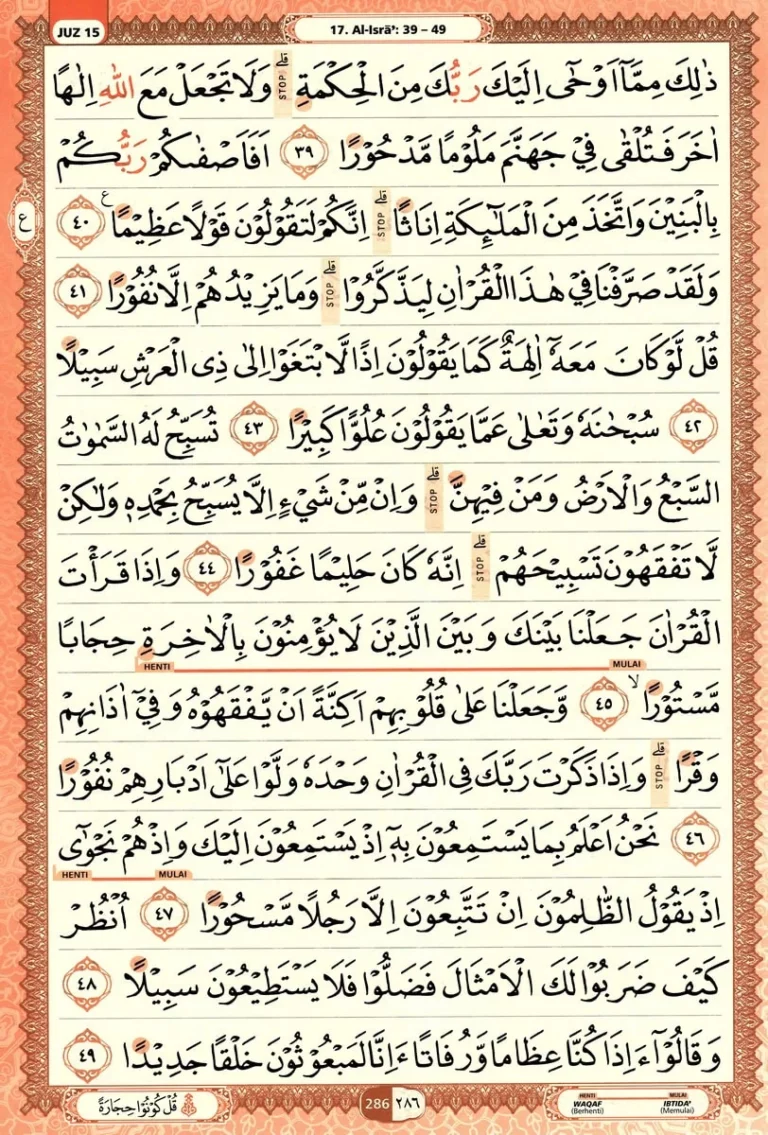 JUZ 15
17. Al-Isrā’: 39 – 49
ذٰلِكَ مِمَّآ اَوْحٰٓى اِلَيْكَ رَبُّكَ مِنَ الْحِكْمَةِ ۗ STOP وَلَا تَجْعَلْ مَعَ اللّٰهِ اِلٰهًا
اٰخَرَ فَتُلْقٰى فِيْ جَهَنَّمَ مَلُوْمًا مَّدْحُوْرًا ٣٩ اَفَاَصْفٰىكُمْ رَبُّكُمْ
ع
بِالْبَنِيْنَ وَاتَّخَذَ مِنَ الْمَلٰۤىِٕكَةِ اِنَاثًا ۗ STOP اِنَّكُمْ لَتَقُوْلُوْنَ قَوْلًا عَظِيْمًا ࣖ ٤٠
وَلَقَدْ صَرَّفْنَا فِيْ هٰذَا الْقُرْاٰنِ لِيَذَّكَّرُوْا ۗ STOP وَمَا يَزِيْدُهُمْ اِلَّا نُفُوْرًا ٤١
قُلْ لَّوْ كَانَ مَعَهٗٓ اٰلِهَةٌ كَمَا يَقُوْلُوْنَ اِذًا لَّابْتَغَوْا اِلٰى ذِى الْعَرْشِ سَبِيْلًا
٤٢ سُبْحٰنَهٗ وَتَعٰلٰى عَمَّا يَقُوْلُوْنَ عُلُوًّا كَبِيْرًا ٤٣ تُسَبِّحُ لَهُ السَّمٰوٰتُ
السَّبْعُ وَالْاَرْضُ وَمَنْ فِيْهِنَّ ۗ STOP وَاِنْ مِّنْ شَيْءٍ اِلَّا يُسَبِّحُ بِحَمْدِهٖ وَلٰكِنْ
لَّا تَفْقَهُوْنَ تَسْبِيْحَهُمْ ۗ STOP اِنَّهٗ كَانَ حَلِيْمًا غَفُوْرًا ٤٤ وَاِذَا قَرَأْتَ
الْقُرْاٰنَ جَعَلْنَا بَيْنَكَ وَبَيْنَ الَّذِيْنَ لَا يُؤْمِنُوْنَ بِالْاٰخِرَةِ حِجَابًا
HENTI MULAI
مَّسْتُوْرًاۙ ٤٥ وَّجَعَلْنَا عَلٰى قُلُوْبِهِمْ اَكِنَّةً اَنْ يَّفْقَهُوْهُ وَفِيْٓ اٰذَانِهِمْ
وَقْرًا ۗ STOP وَاِذَا ذَكَرْتَ رَبَّكَ فِى الْقُرْاٰنِ وَحْدَهٗ وَلَّوْا عَلٰٓى اَدْبَارِهِمْ نُفُوْرًا
٤٦ نَحْنُ اَعْلَمُ بِمَا يَسْتَمِعُوْنَ بِهٖٓ اِذْ يَسْتَمِعُوْنَ اِلَيْكَ وَاِذْ هُمْ نَجْوٰٓى
HENTI MULAI
اِذْ يَقُوْلُ الظّٰلِمُوْنَ اِنْ تَتَّبِعُوْنَ اِلَّا رَجُلًا مَّسْحُوْرًا ٤٧ اُنْظُرْ
كَيْفَ ضَرَبُوْا لَكَ الْاَمْثَالَ فَضَلُّوْا فَلَا يَسْتَطِيْعُوْنَ سَبِيْلًا ٤٨
وَقَالُوْٓا ءَاِذَا كُنَّا عِظَامًا وَّرُفَاتًا ءَاِنَّا لَمَبْعُوْثُوْنَ خَلْقًا جَدِيْدًا ٤٩
قُلْ كُوْنُوْا حِجَارَةً
286 ٢٨٦
HENTI MULAI
WAQAF IBTIDA'
(Berhenti) (Memulai)